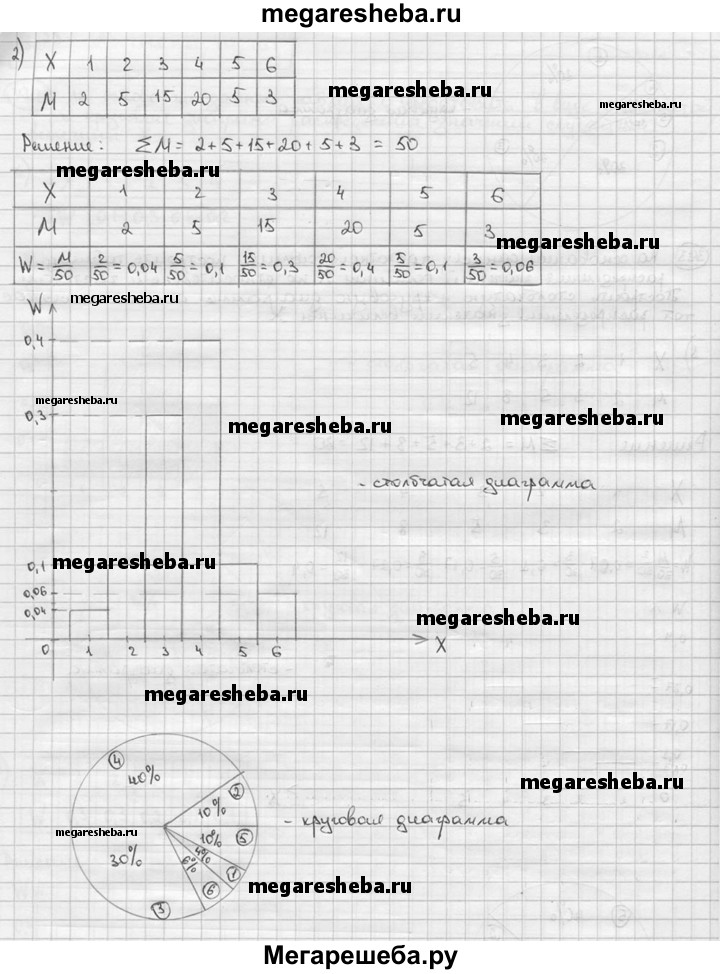 megaresheba.ru
2) X 1 2 3 4 5 6
M 2 5 15 20 5 3
megaresheba.ru
megaresheba.ru
Решение: ΣM = 2+5+15+20+5+3 = 50
megaresheba.ru
X 1 2 3 4 5 6
M 2 5 15 20 5 3
megaresheba.ru
W = M/50 2/50 = 0,04 5/50 = 0,1 15/50 = 0,3 20/50 = 0,4 5/50 = 0,1 3/50 = 0,06
megaresheba.ru
W
0,4
megaresheba.ru
0,3
megaresheba.ru
megaresheba.ru
- столбчатая диаграмма
megaresheba.ru
0,1
0,06
0,04
megaresheba.ru
0 1 2 3 4 5 6 X
megaresheba.ru
4 40%
2 10%
megaresheba.ru
5 10%
- круговая диаграмма
megaresheba.ru
1 4%
6 6%
3 30%
megaresheba.ru
Мегарешеба.ру